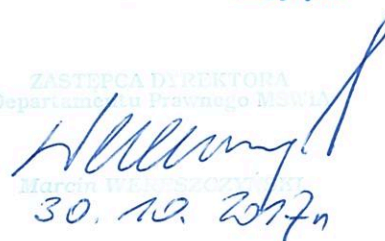 ZASTĘPCA DYREKTORA
Departamentu Prawnego MSWiA
Marcin WERESZCZYŃSKI
30. 10. 2017r